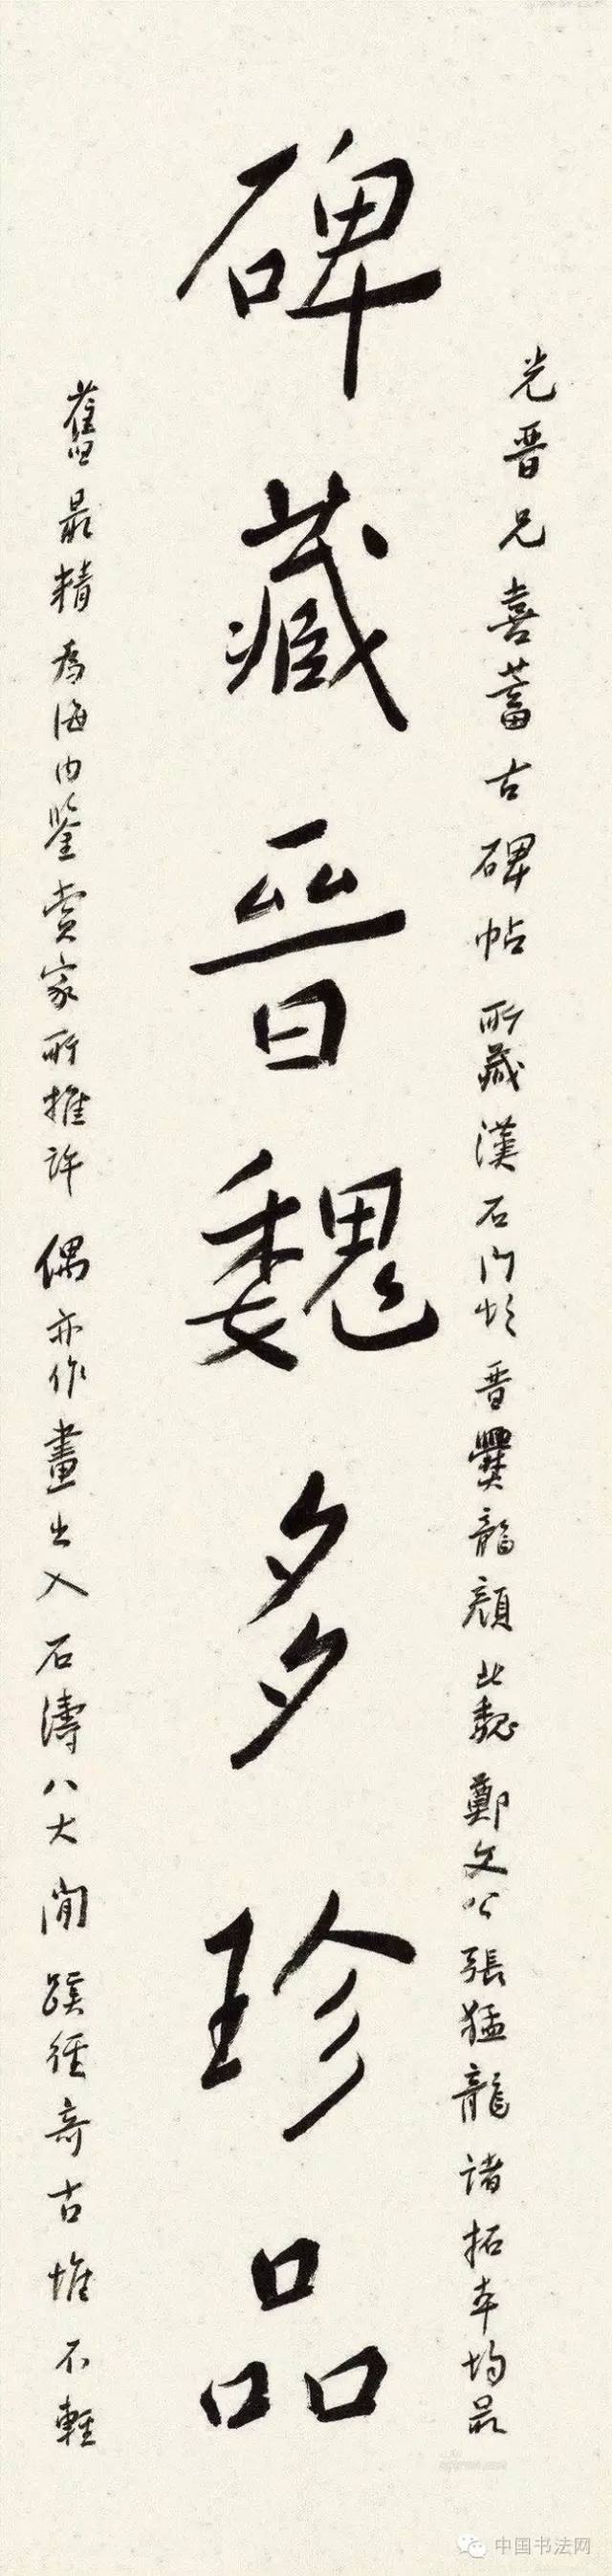 光晋兄喜蓄古碑帖所藏漢石门頌晋爨龍顔北魏鄭文公張猛龍諸拓本均最
碑藏晋魏多珍品
舊最精为海内鉴赏家所推许偶亦作畫出入石濤八大間蹊徑奇古惟不輕
中国书法网